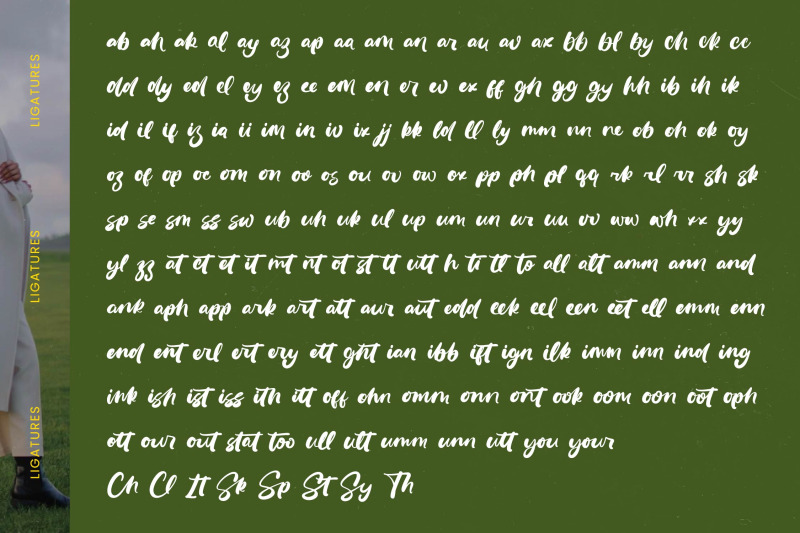 LIGATURES
LIGATURES
LIGATURES
ab ah ak al ay az ap aa am an ar au av ax bb bl by ch ck cc
dd dy ed el ey ez ee em en er ev ex ff gh gg gy hh ib ih ik
id il if iz ia ii im in iv ix jj kk ld ll ly mm nn ne ob oh ok oy
oz of op oc om on oo os ou ov ow ox pp ph pl qq rk rl rr sh sk
sp se sm ss sw ub uh uk ul up um un ur uu vv ww wh xx yy
yl zz at ct et it mt nt ot st tt utt h ti tl to all att amm ann and
ank aph app ark art att aur aut edd eek eel een eet ell emm enn
end ent erl ert ery ett ght ian ibb ift ign ilk imm inn ind ing
ink ish ist iss ith itt off ohn omm onn ort ook oom oon oot oph
ott our out stat too ull ult umm unn utt you your
Ch Cl It Sk Sp St Sy Th